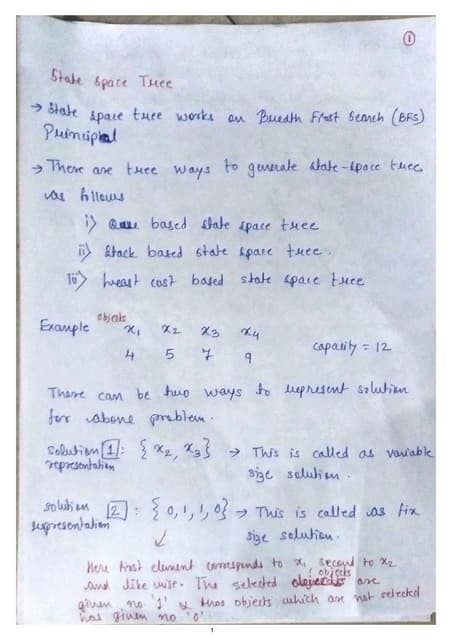 1
State Space Tree
→ State space tree works on Breadth First Search (BFS)
Principal
→ There are tree ways to generate state-space tree
as follows
i) Queue based state space tree
ii) Stack based state space tree.
iii) Least cost based state space tree
objects
Example x₁ x₂ x₃ x₄
4 5 7 9 capacity = 12
There can be two ways to represent solution
for above problem.
Solution 1 : { x₂, x₃ } → This is called as variable
representation size solution.
solution 2 : { 0, 1, 1, 0 } → This is called as fix
representation size solution.
Here first element corresponds to x₁, second to x₂
and like wise. The selected objects are
given no. '1' & thos objects which are not selected
has given no '0'.
1